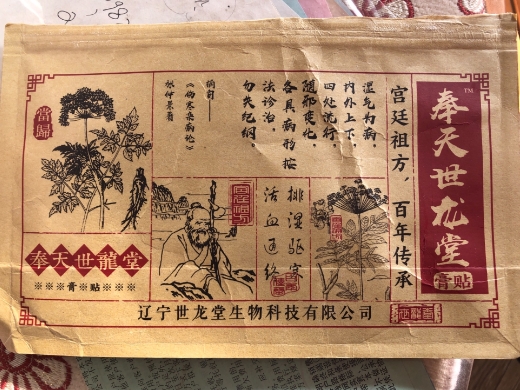 奉天世龙堂
TM
膏贴
宫廷祖方，百年传承
湿气为病，
内外上下，
四处流行，
随邪变化，
各具病形，按
法诊治，
勿失纪纲。
摘自——
《伤寒杂病论》
张仲景著
當歸
排湿驱寒
活血通络
奉天世龍堂
※※※膏※贴※※※
辽宁世龙堂生物科技有限公司